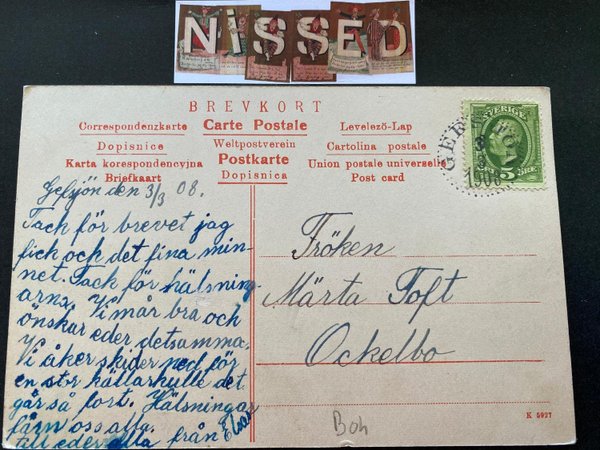 NiSSED
BREVKORT
Correspondenzkarte Carte Postale Levelező-Lap
Dopisnice Weltpostverein Cartolina postale
Karta korespondencyjna Postkarte Union postale universelle
Briefkaart Dopisnica Post card
SVERIGE
5 ÖRE
1908
Gefsjön den 3/3 08.
Tack för brevet jag
fick och det fina min-
net. Tack för hälsning-
arna. Vi mår bra och
önskar eder detsamma.
Vi åker skider ned för
en stor källarkulle det
går så fort. Hälsningar
från oss alla.
till eder alla från Elsa
Fröken
Märta Toft
Ockelbo
Boh
K 5927